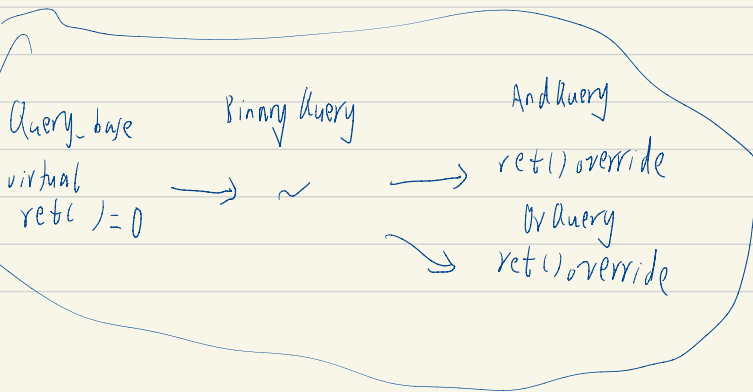 Query_base
virtual
ret( ) = 0
Binary Query
~
AndQuery
ret() override
OrQuery
ret() override